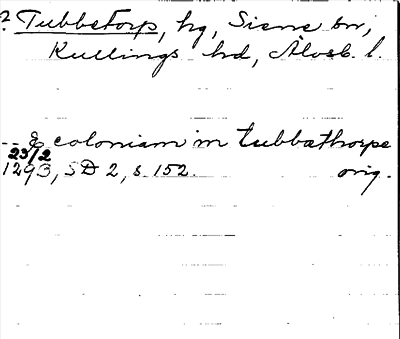 ? Tubbetorp, hg, Siene sn,
Kullings hd, Älvsb. l.
-- & coloniam in tubbathorpe
23/2
1293, SD 2, s. 152. orig.